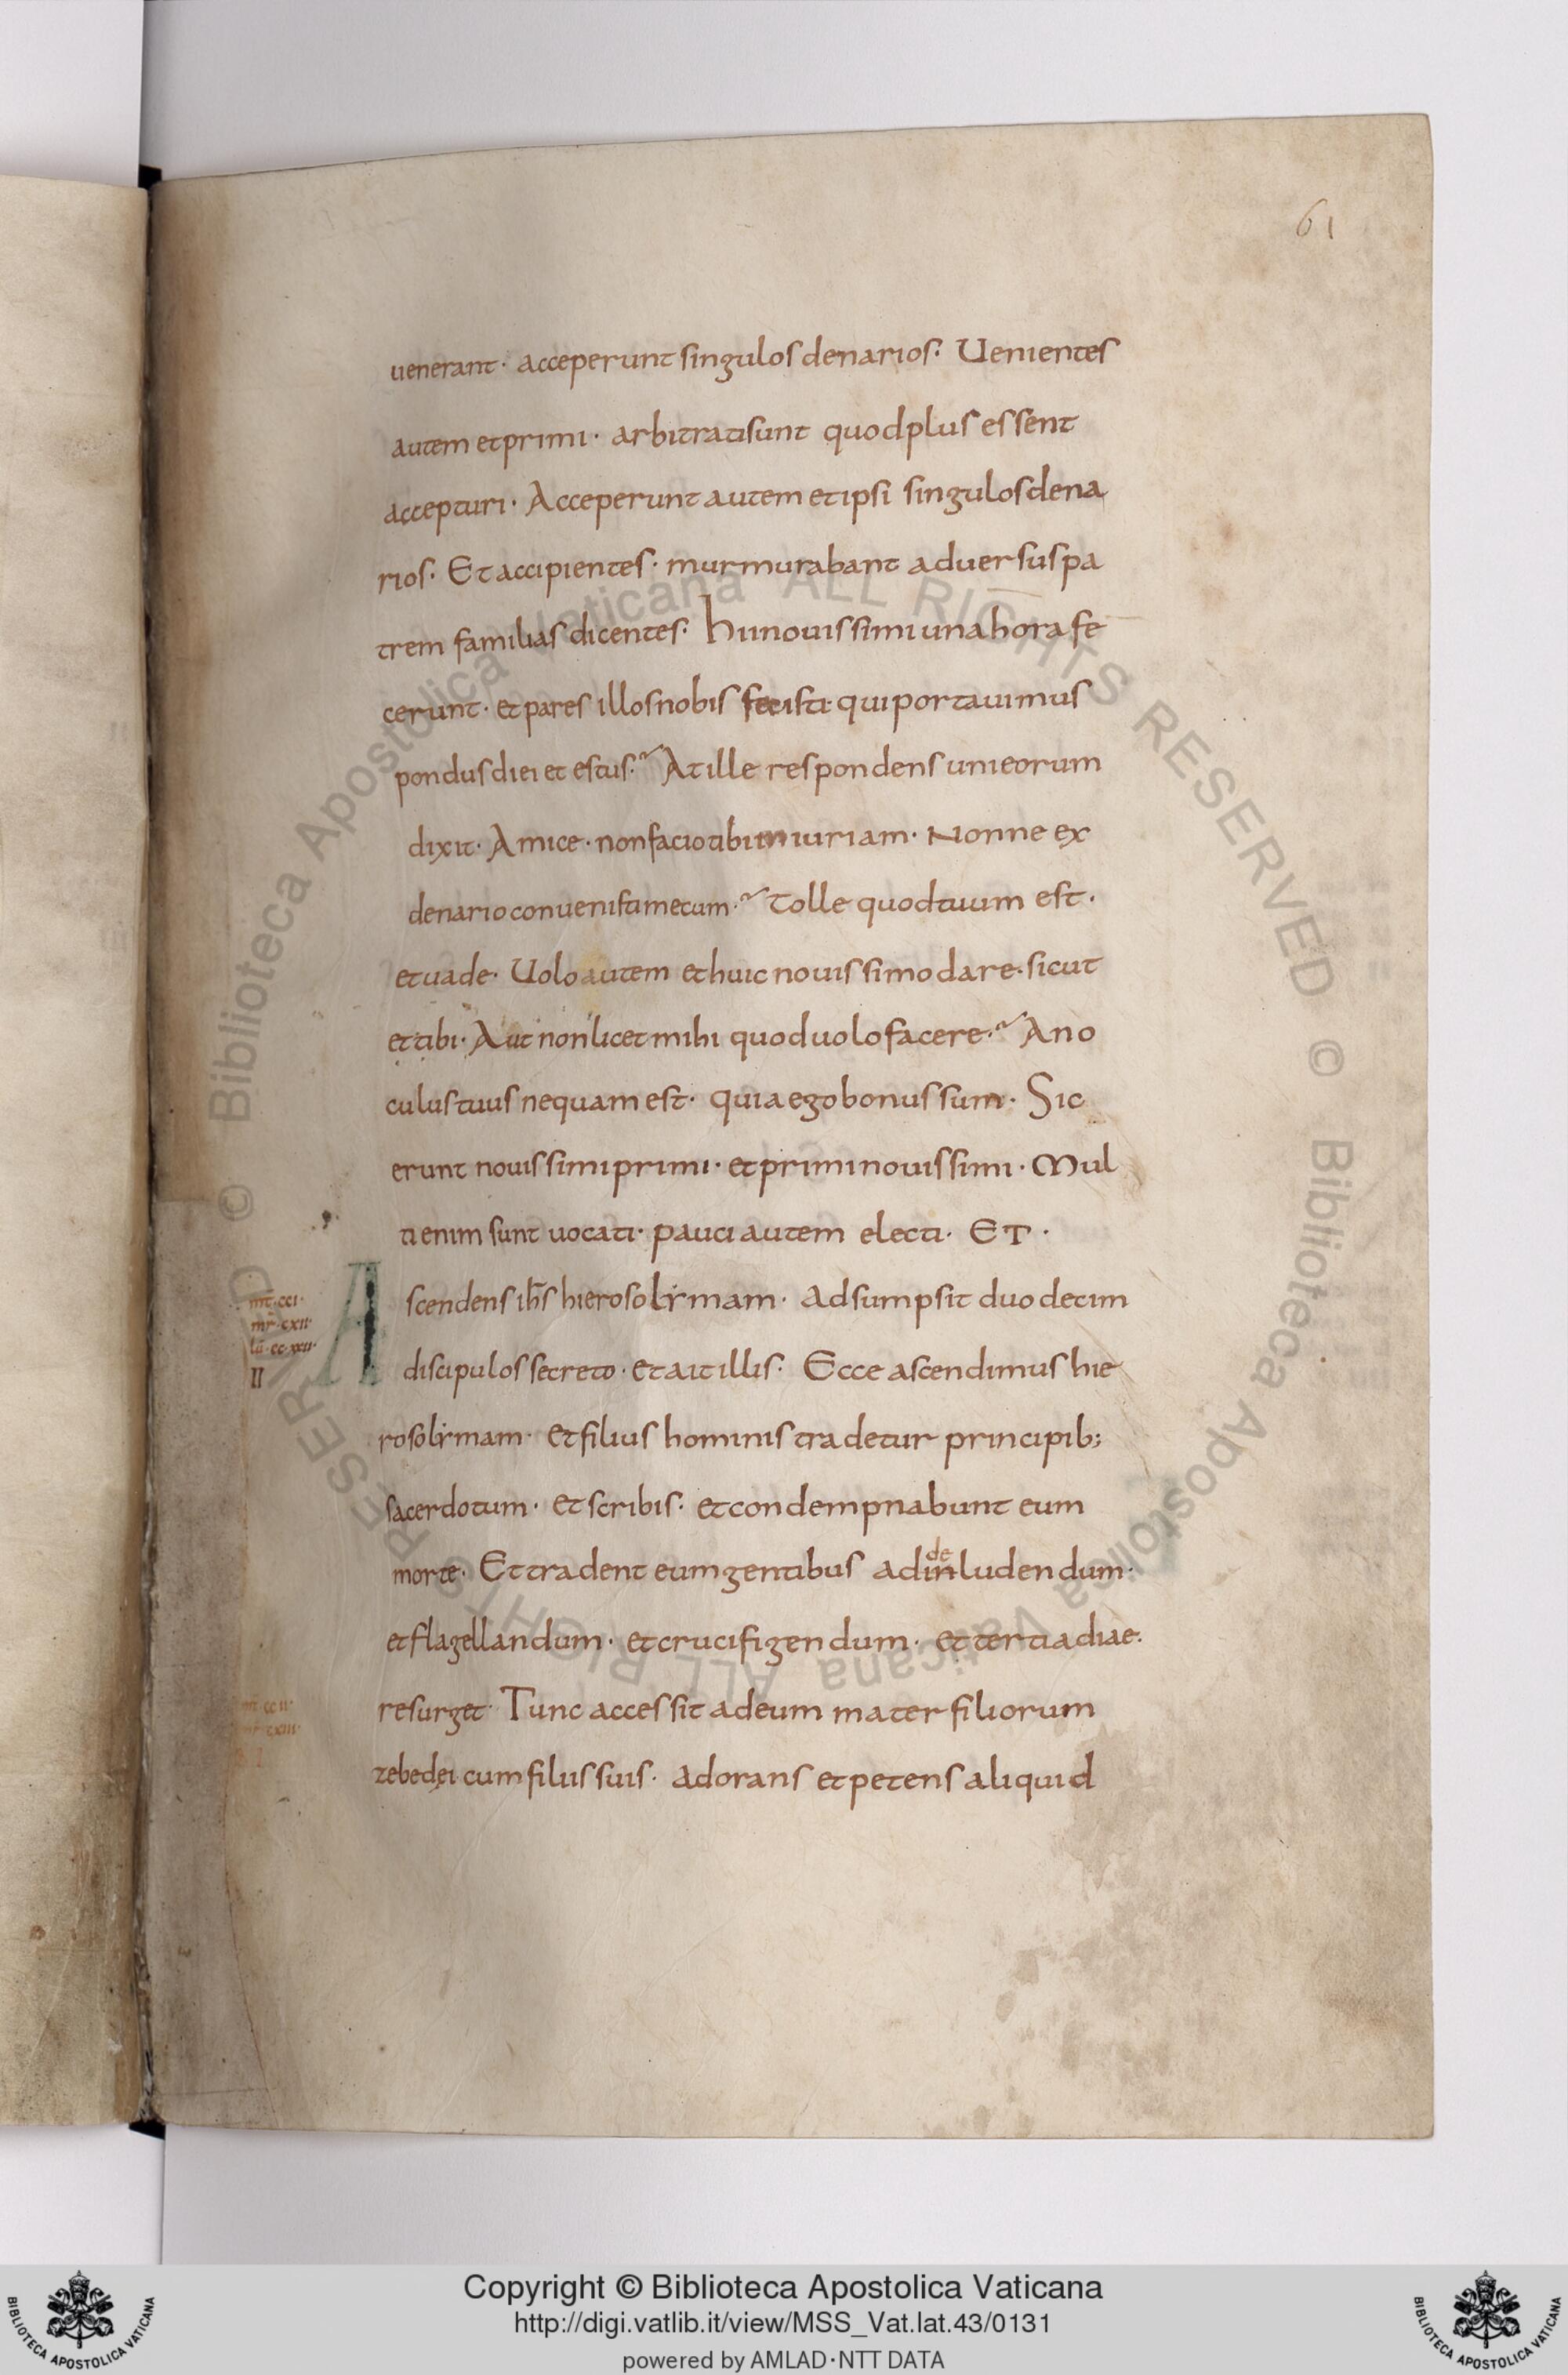 61
uenerant· acceperunt singulos denarios· Uenientes
autem et primi· arbitrati sunt quod plus essent
accepturi· Acceperunt autem et ipsi singulos dena
rios· Et accipientes· murmurabant aduersus pa
trem familias dicentes· hii nouissimi una hora fe
cerunt· et pares illos nobis fecisti qui portauimus
pondus diei et estus·? At ille respondens uni eorum
dixit· Amice· non facio tibi iniuriam· Nonne ex
denario conuenisti mecum·? Tolle quod tuum est·
et uade· Uolo autem et huic nouissimo dare· sicut
et tibi· Aut non licet mihi quod uolo facere·? An o
culus tuus nequam est· quia ego bonus sum· Sic
erunt nouissimi primi· et primi nouissimi· Mul
ti enim sunt uocati· pauci autem electi· ET·
Ascendens ihs̄ hierosolẏmam· adsumpsit duodecim
mt̄·cci·
mr̄·cxii·
lū·cc·xxii·
II
discipulos secreto· et ait illis· Ecce ascendimus hie
rosolẏmam· et filius hominis tradetur principib;
sacerdotum· et scribis· et condempnabunt eum
morte· Et tradent eum gentibus ad inludendum·
de
et flagellandum· et crucifigendum· et tertia diae·
resurget· Tunc accessit ad eum mater filiorum
zebedei cum filiis suis· adorans et petens aliquid
© Biblioteca Apostolica Vaticana ALL RIGHTS RESERVED
© Biblioteca Apostolica Vaticana ALL RIGHTS RESERVED
Copyright © Biblioteca Apostolica Vaticana
http://digi.vatlib.it/view/MSS_Vat.lat.43/0131
powered by AMLAD·NTT DATA
BIBLIOTECA APOSTOLICA VATICANA
BIBLIOTECA APOSTOLICA VATICANA